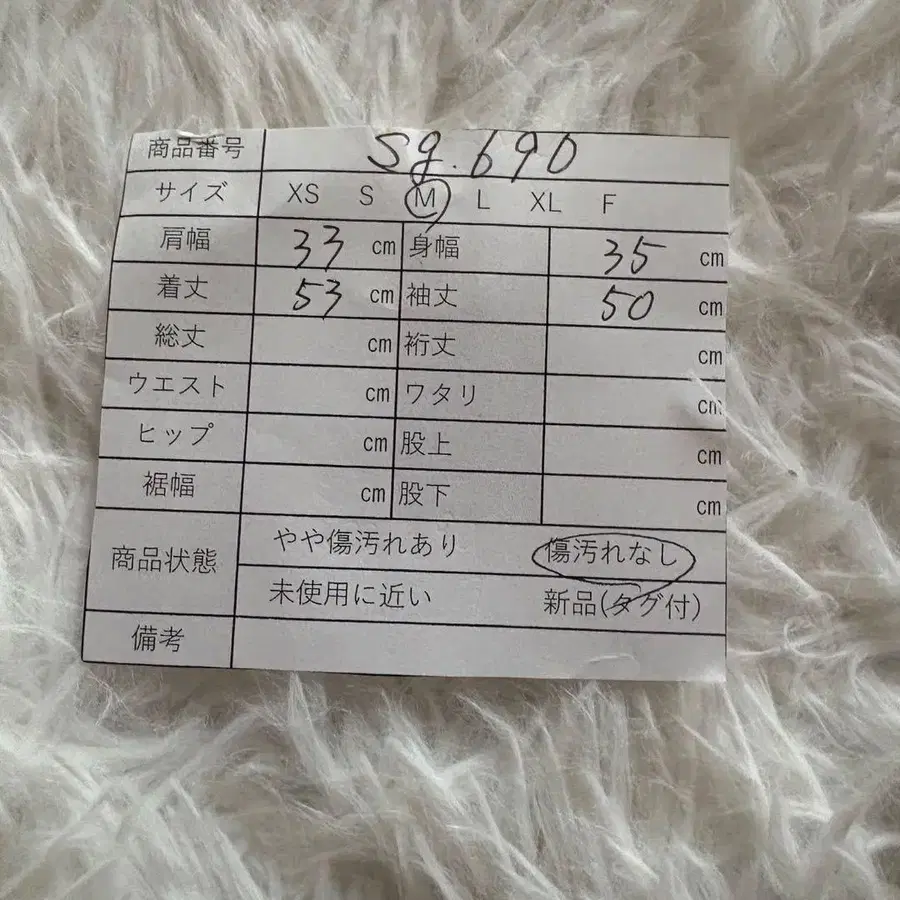 商品番号 sg.690
サイズ XS S M L XL F
肩幅 33 cm 身幅 35 cm
着丈 53 cm 袖丈 50 cm
総丈 cm 裄丈 cm
ウエスト cm ワタリ cm
ヒップ cm 股上 cm
裾幅 cm 股下 cm
商品状態 やや傷汚れあり 傷汚れなし
未使用に近い 新品(タグ付)
備考